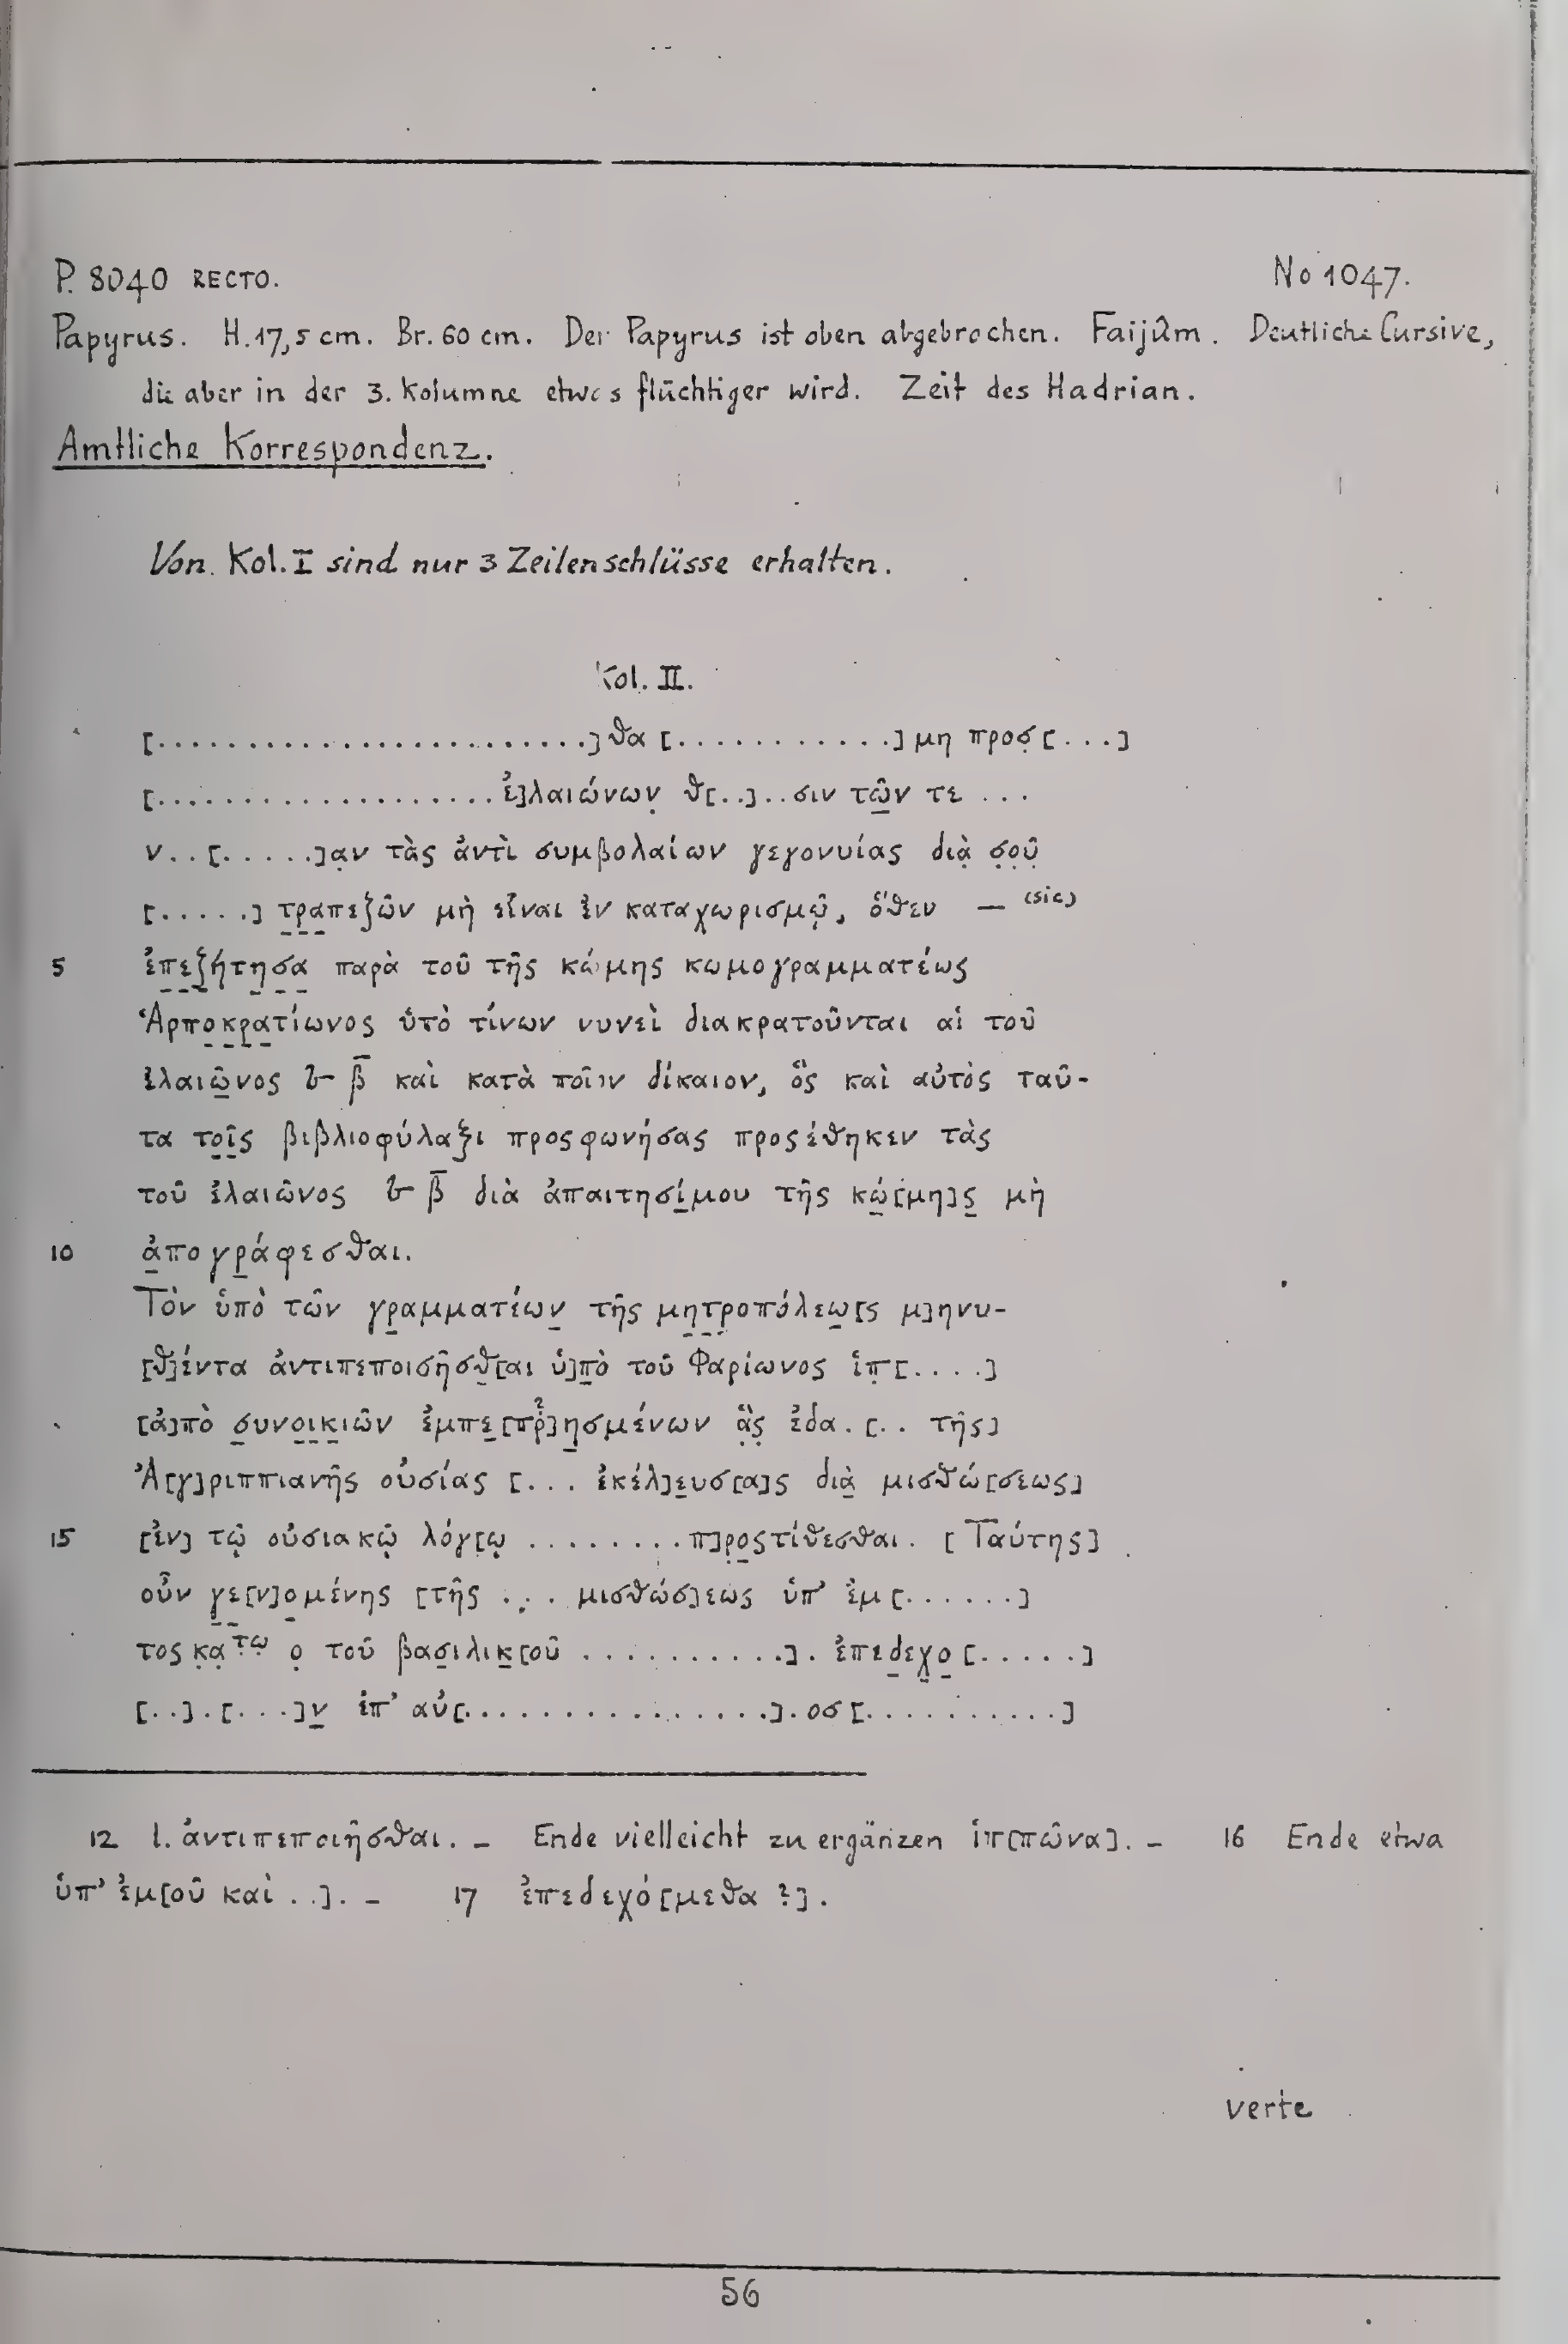 P. 8040 RECTO. No 1047.
Papyrus. H. 17,5 cm. Br. 60 cm. Der Papyrus ist oben abgebrochen. Faijûm. Deutliche Cursive,
die aber in der 3. Kolumne etwas flüchtiger wird. Zeit des Hadrian.
Amtliche Korrespondenz.
Von Kol. I sind nur 3 Zeilenschlüsse erhalten.
Kol. II.
[........................]θα[............]μη προσ̣[...]
[...................ἐ]λαιώνων̣ θ[..]..σιν τῶ̣ν τε ...
ν..[......]α̣ν τὰς ἀντὶ συμβολαίων γεγονυίας διὰ̣ σ̣ο̣ῦ̣
[.....] τ̣ρ̣α̣πεζῶν μὴ εἶναι ἐν καταχωρισμῷ, ὅθεν — (sic)
5 ἐ̣π̣ε̣ζ̣ή̣τ̣η̣σ̣α̣ παρὰ τοῦ τῆς κώμης κωμογραμματέως
Ἁρπο̣κ̣ρ̣α̣τίωνος ὑπὸ τίνων νυνεὶ διακρατοῦνται αἱ τοῦ
ἐλαιῶ̣νος 𐅵 β̄ καὶ κατὰ ποῖον δίκαιον, ὃς καὶ αὐτὸς ταῦ-
τα τ̣ο̣ῖ̣ς βιβλιοφύλαξι προσφωνήσας προσέθηκεν τὰς
τοῦ ἐλαιῶνος 𐅵 β̄ διὰ ἀπαιτησί̣μου τῆς κώ̣[μη]ς̣ μὴ
10 ἀ̣πογρ̣άφεσθαι.
Τὸν ὑπὸ τῶν γρ̣αμματέων̣ τῆς μη̣τ̣ρ̣οπόλεω̣[ς μ]ηνυ-
[θ]έντα ἀντιπεποισῆσθ̣[αι ὑ]π̣ὸ τοῦ Φαρίωνος ἱπ̣[....]
[ἀ]πὸ σ̣υνο̣ι̣κ̣ιῶν ἐμπε̣[πρ?]η̣σμένων ἃ̣ς̣ ἐδα.[.. τῆς]
Ἀ[γ]ριππιανῆς οὐσίας [... ἐκέλ]ε̣υσ[α]ς διὰ̣ μισθώ[σεως]
15 [ἐν] τῷ οὐσιακῷ λόγ[ῳ .........π]ρ̣ο̣στίθεσθαι. [Ταύτης]
οὖν γ̣ε̣[ν]ο̣μένης [τῆς ... μισθώσ]εως ὑπ' ἐμ[......]
τος κ̣α̣τω ο̣ τοῦ βασ̣ιλικ̣[οῦ ..........]. ἐπεδ̣ε̣χ̣ο̣[.....]
[..].[...]ν̣ ἐπ' αὐ[................].οσ[..........]
12 l. ἀντιπεποιῆσθαι. – Ende vielleicht zu ergänzen ἱπ[πῶνα]. – 16 Ende etwa
ὑπ' ἐμ[οῦ καὶ ..]. – 17 ἐπεδεχό[μεθα ?].
verte
56